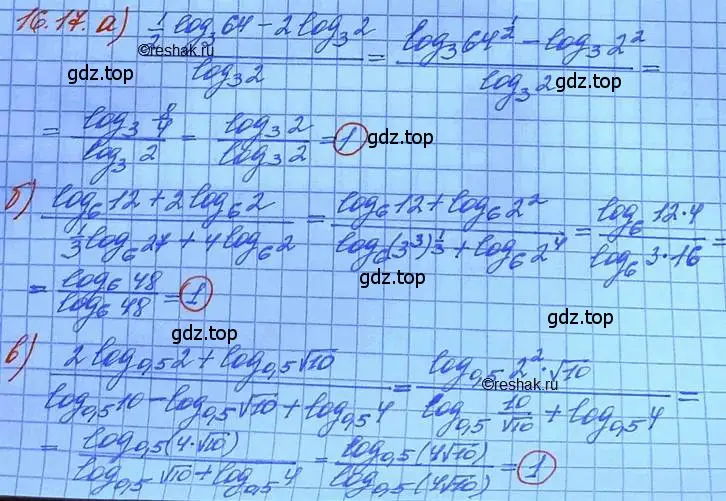 16.17. а) (1/2 log₃ 64 − 2 log₃ 2)/(log₃ 2) = (log₃ 64^(1/2) − log₃ 2²)/(log₃ 2) =
©reshak.ru
gdz.top gdz.top
= (log₃ 8/4)/(log₃ 2) = (log₃ 2)/(log₃ 2) = 1 gdz.top
б) (log₆ 12 + 2 log₆ 2)/(1/3 log₆ 27 + 4 log₆ 2) = (log₆ 12 + log₆ 2²)/(log₆ (3³)^(1/3) + log₆ 2⁴) = (log₆ 12·4)/(log₆ 3·16) =
gdz.top gdz.top
= (log₆ 48)/(log₆ 48) = 1
gdz.top gdz.top
в) (2 log₀,₅ 2 + log₀,₅ √10)/(log₀,₅ 10 − log₀,₅ √10 + log₀,₅ 4) = (log₀,₅ 2²·√10)/(log₀,₅ 10/√10 + log₀,₅ 4) =
©reshak.ru
= (log₀,₅ (4·√10))/(log₀,₅ √10 + log₀,₅ 4) = (log₀,₅ (4√10))/(log₀,₅ (4√10)) = 1
gdz.top gdz.top